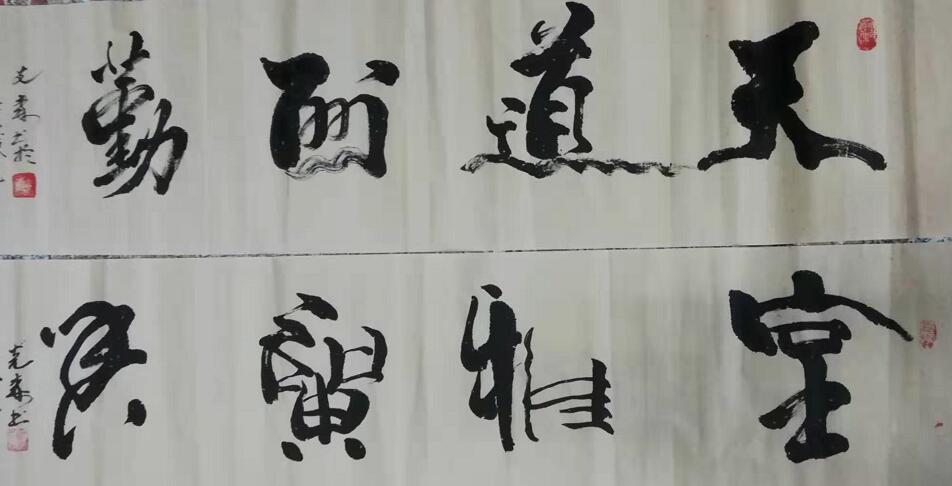 天道酬勤
室雅蘭香